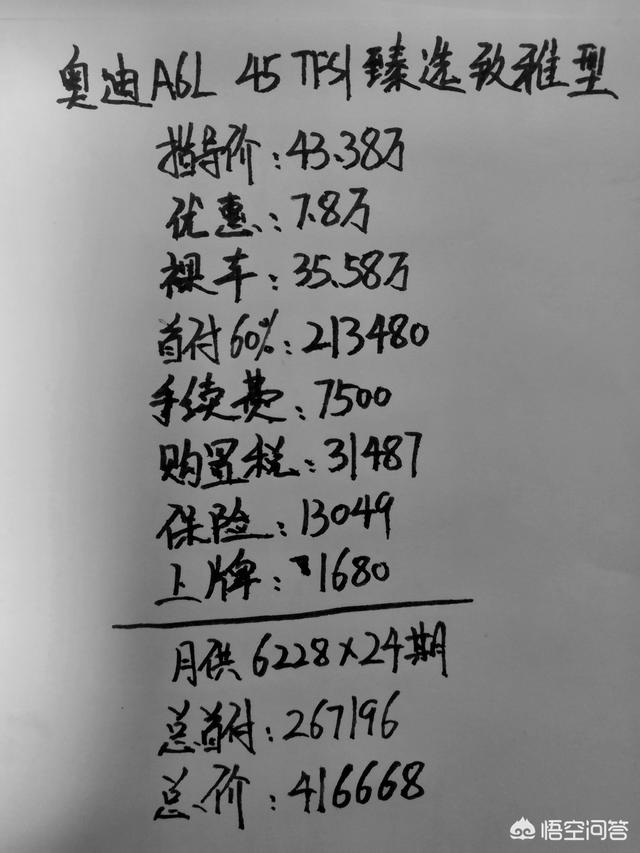 奥迪A6L 45 TFSI臻选致雅型
指导价:43.38万
优惠:7.8万
裸车:35.58万
首付60%:213480
手续费:7500
购置税:31487
保险:13049
上牌:1680
月供6228×24期
总首付:267196
总价:416668
悟空问答